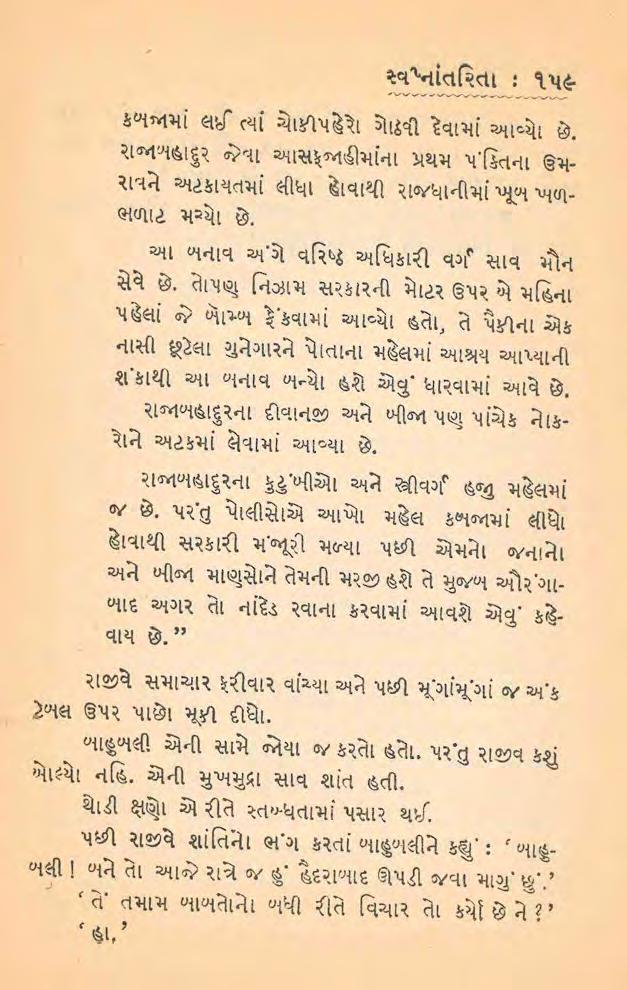 સ્વપ્નાંતરિતા : ૧૫૯
કબજામાં લઈ ત્યાં ચોકીપહેરો ગોઠવી દેવામાં આવ્યો છે.
રાજાબહાદુર જેવા આસફજાહીમાંના પ્રથમ પંક્તિના ઉમ-
રાવને અટકાયતમાં લીધા હોવાથી રાજધાનીમાં ખૂબ ખળ-
ભળાટ મચ્યો છે.
આ બનાવ અંગે વરિષ્ઠ અધિકારી વર્ગ સાવ મૌન
સેવે છે. તોપણ નિઝામ સરકારની મોટર ઉપર બે મહિના
પહેલાં જે બૉમ્બ ફેંકવામાં આવ્યો હતો, તે પૈકીના એક
નાસી છૂટેલા ગુનેગારને પોતાના મહેલમાં આશ્રય આપ્યાની
શંકાથી આ બનાવ બન્યો હશે એવું ધારવામાં આવે છે.
રાજાબહાદુરના દીવાનજી અને બીજા પણ પાંચેક નોક-
રોને અટકમાં લેવામાં આવ્યા છે.
રાજાબહાદુરના કુટુંબીઓ અને સ્ત્રીવર્ગ હજુ મહેલમાં
જ છે. પરંતુ પોલીસોએ આખો મહેલ કબજામાં લીધો
હોવાથી સરકારી મંજૂરી મળ્યા પછી એમનો જનાનો
અને બીજા માણસોને તેમની મરજી હશે તે મુજબ ઔરંગા-
બાદ અગર તો નાંદેડ રવાના કરવામાં આવશે એવું કહે-
વાય છે.”
રાજીવે સમાચાર ફરીવાર વાંચ્યા અને પછી મૂંગાંમૂંગાં જ અંક
ટેબલ ઉપર પાછો મૂકી દીધો.
બાહુબલી એની સામે જોયા જ કરતો હતો. પરંતુ રાજીવ કશું
બોલ્યો નહિ. એની મુખમુદ્રા સાવ શાંત હતી.
થોડી ક્ષણો એ રીતે સ્તબ્ધતામાં પસાર થઈ.
પછી રાજીવે શાંતિનો ભંગ કરતાં બાહુબલીને કહ્યું : ‘ બાહુ-
બલી ! બને તો આજે રાત્રે જ હું હૈદરાબાદ ઊપડી જવા માગું છું.’
‘ તેં તમામ બાબતોનો બધી રીતે વિચાર તો કર્યો છે ને ?’
‘ હા.’